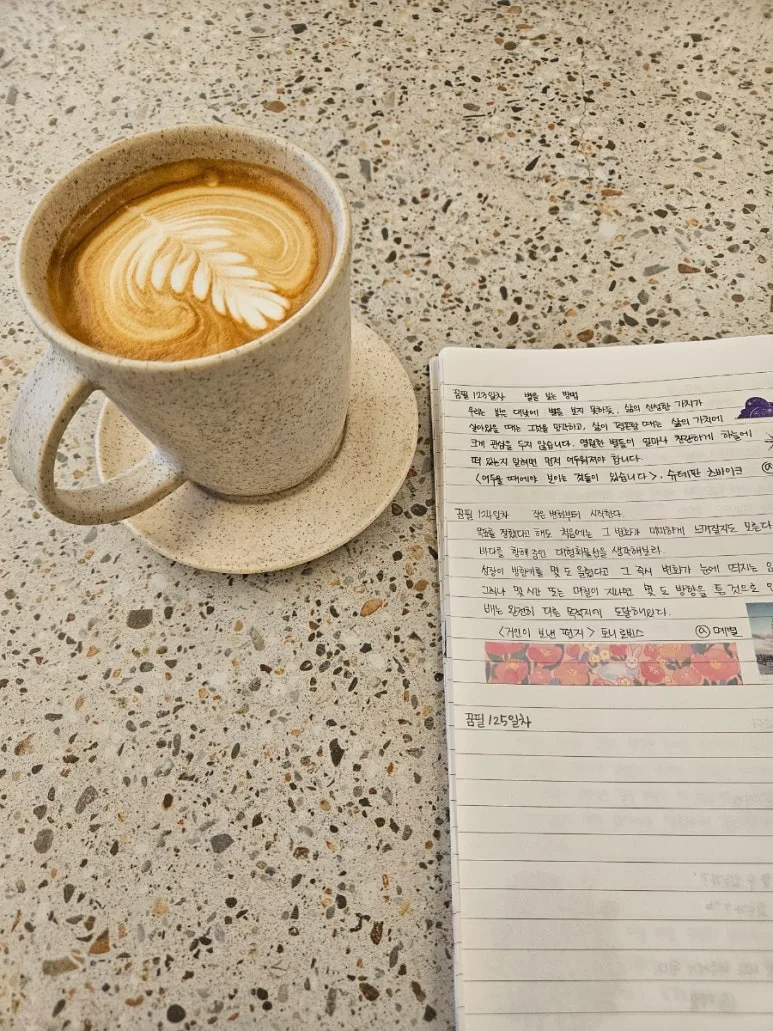 꿈필 123일차 별을 보는 방법
우리는 낮은 대낮에 별을 보지 못하듯, 삶의 신성한 가치가
살아있을 때는 그것을 망각하고, 삶이 평온할 때에는 삶의 가치에
크게 관심을 두지 않습니다. 영원한 별들이 얼마나 찬란하게 하늘에
떠 있는지 알려면 먼저 어두워져야 합니다.
<어두울 때에야 보이는 것들이 있습니다>, 슈테판 츠바이크
꿈필 124일차 작은 변화부터 시작한다.
목표를 정했다고 해도 처음에는 그 변화가 미미하게 느껴질지도 모른다
바다를 항해 중인 대형화물선을 생각해보라.
선장이 방향키를 몇 도 돌렸다고 그 즉시 변화가 눈에 띄지는
그러나 몇 시간 또는 며칠이 지나면 몇 도 방향을 튼 것으로
배는 완전히 다른 목적지에 도달해있다.
<거인이 보낸 편지> 토니 로빈스
꿈필 125일차